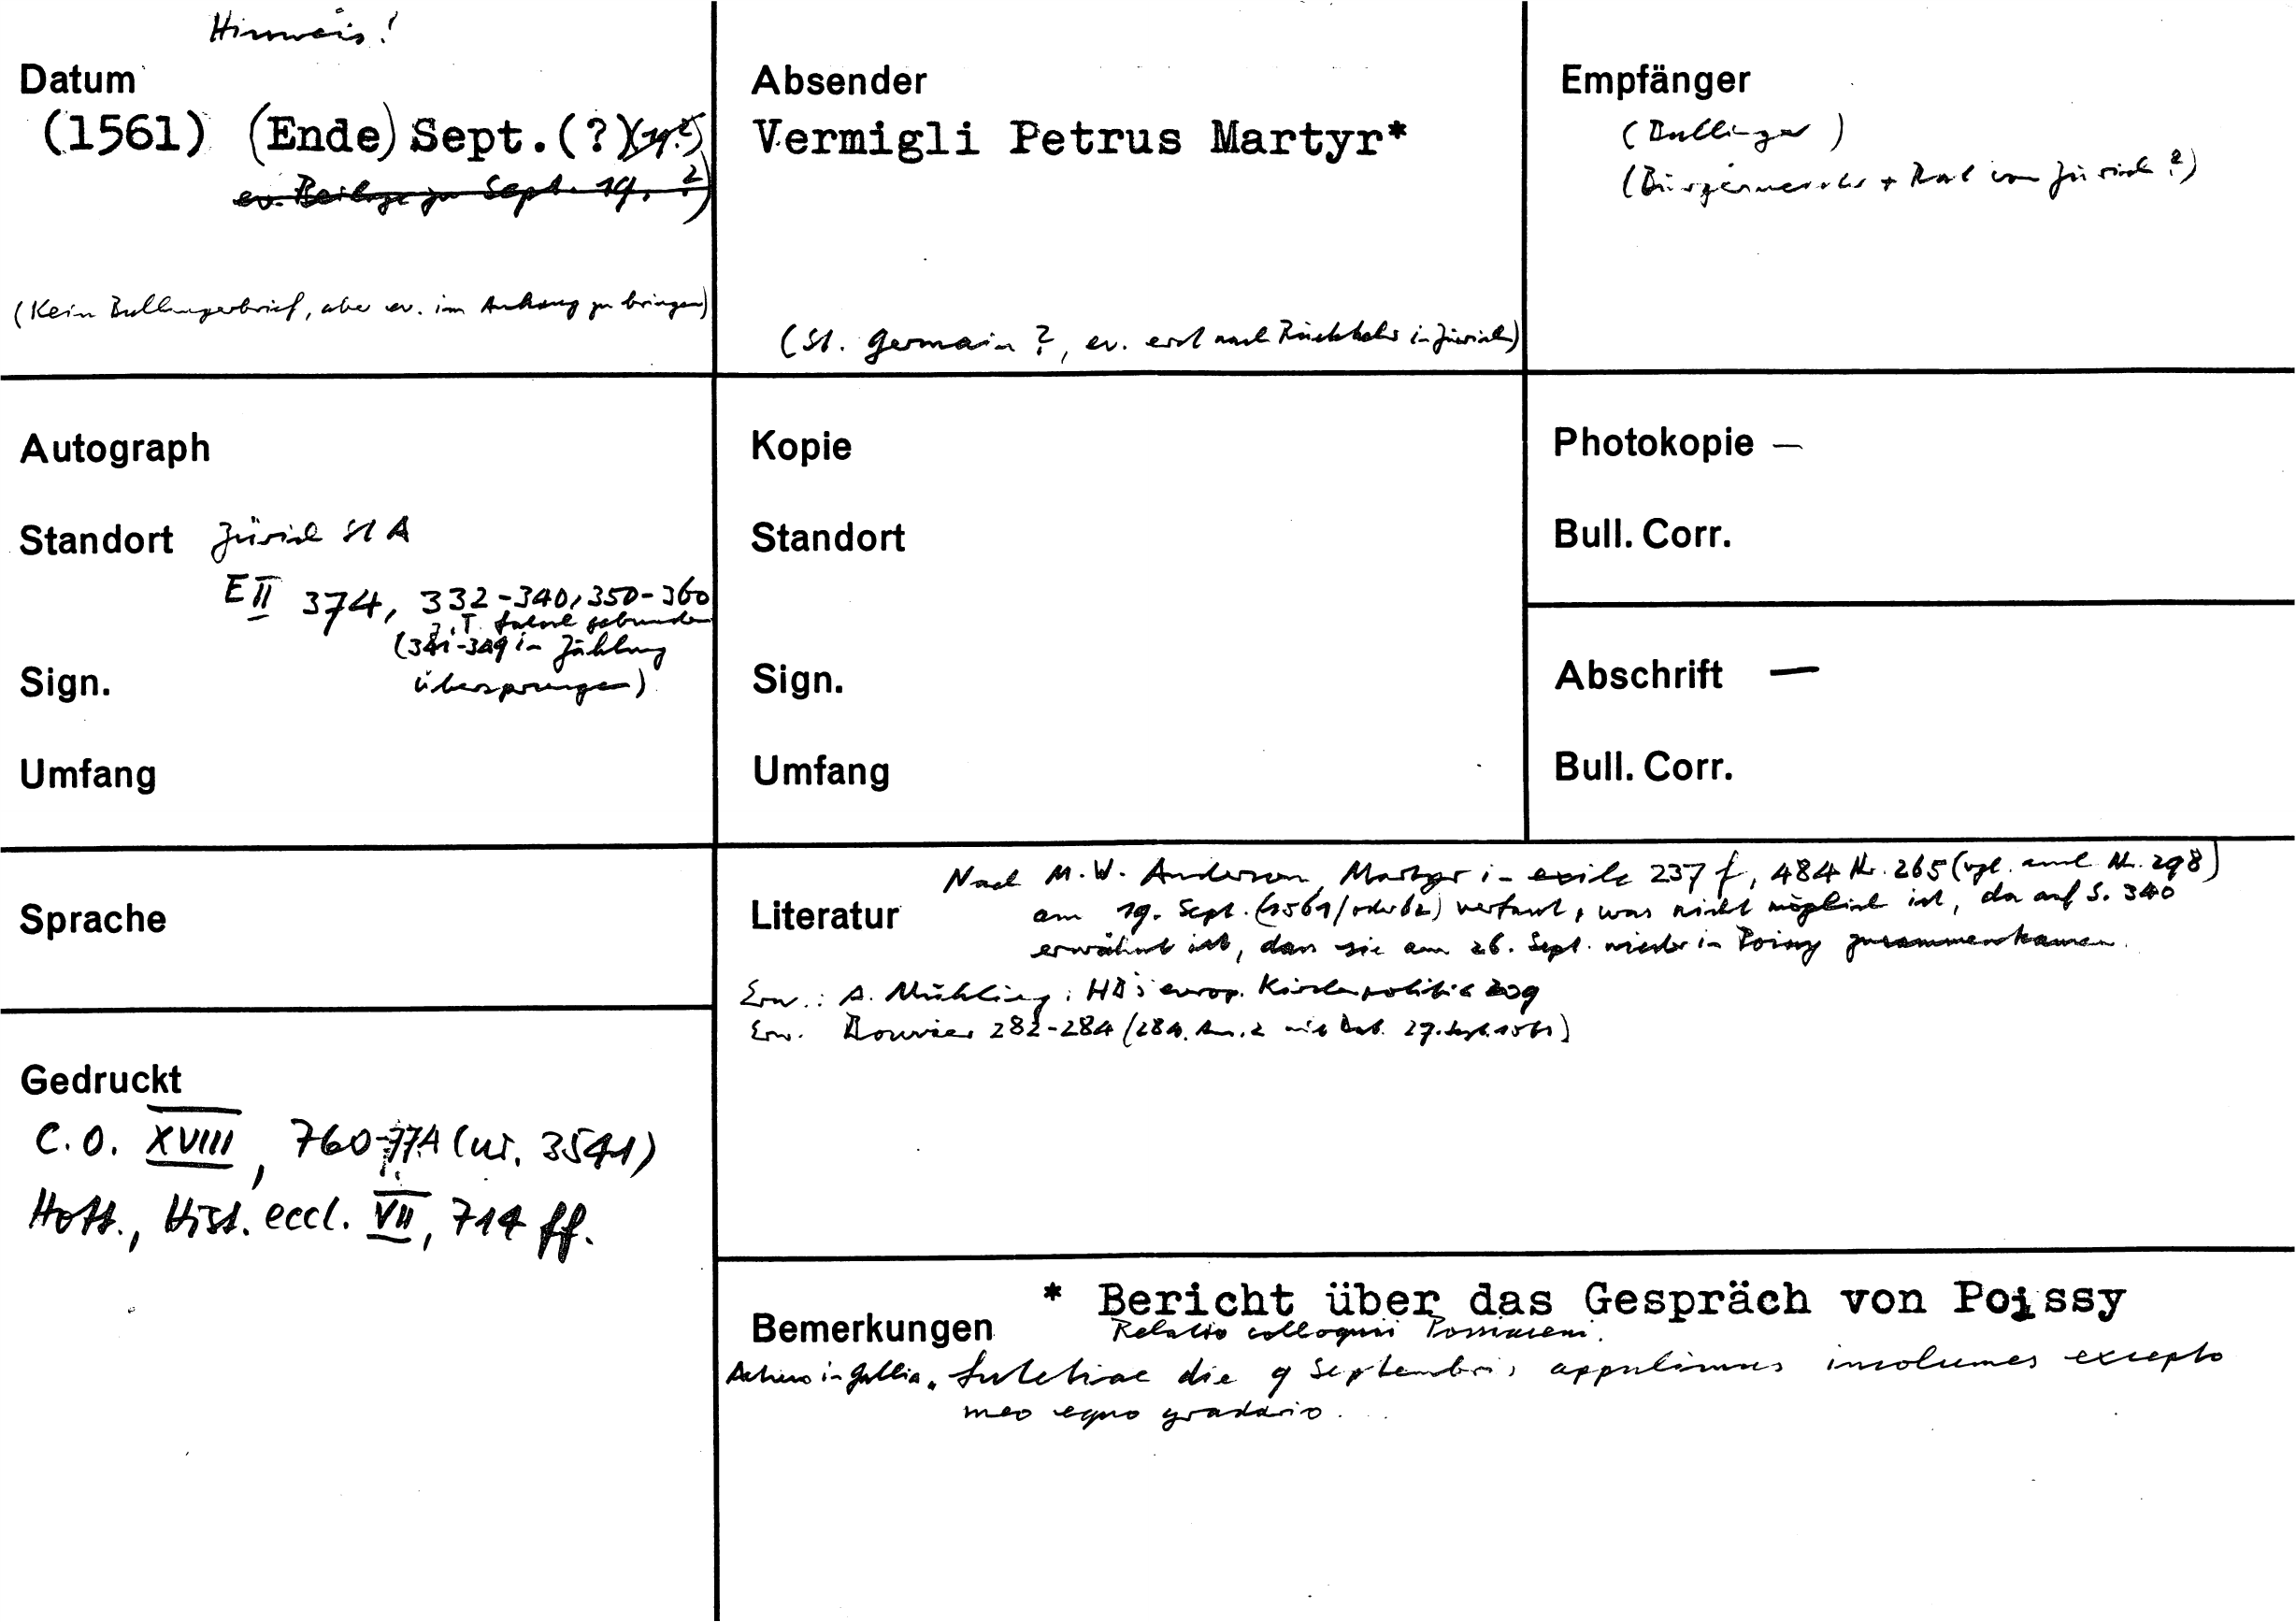 Hinweis!
Datum
(1561) (Ende) Sept. (?) (19.?)
ev. Beilage zu Sept. 19. ?)
(Kein Bullingerbrief, aber ev. im Anhang zu bringen)
Absender
Vermigli Petrus Martyr*
(St. Germain ?, ev. erst nach Rückkehr in Zürich)
Empfänger
(Bullinger)
(Bürgermeister + Rat von Zürich ?)
Autograph
Standort Zürich StA
E II 374, 332-340, 350-360
z.T. falsch gebunden
(341-349 in Zählung
Sign. übersprungen)
Umfang
Kopie
Standort
Sign.
Umfang
Photokopie —
Bull. Corr.
Abschrift —
Bull. Corr.
Sprache
Gedruckt
C.O. XVIII, 760-774 (nr. 3541)
Hott., Hist. eccl. VII, 714 ff.
Nach M.W. Anderson, Martyr in exile 237 f, 484 Nr. 265 (vgl. auch Nr. 298)
Literatur am 19. Sept. (1561/oder 62) verfasst, was nicht möglich ist, da auf S. 340
erwähnt ist, dass sie am 26. Sept. wieder in Poissy zusammenkamen.
Erw.: A. Mühling: HB's europ. Kirchenpolitik 209
Erw. Bouvier 282-284 (284, Anm. 2 mit Dat. 27. Sept. 1561)
* Bericht über das Gespräch von Poissy
Bemerkungen Relatio colloquii Possiaceni.
Actiones in Gallia. Lutetiae die 9 Septembris appulimus incolumes excepto
meo equo gradario...